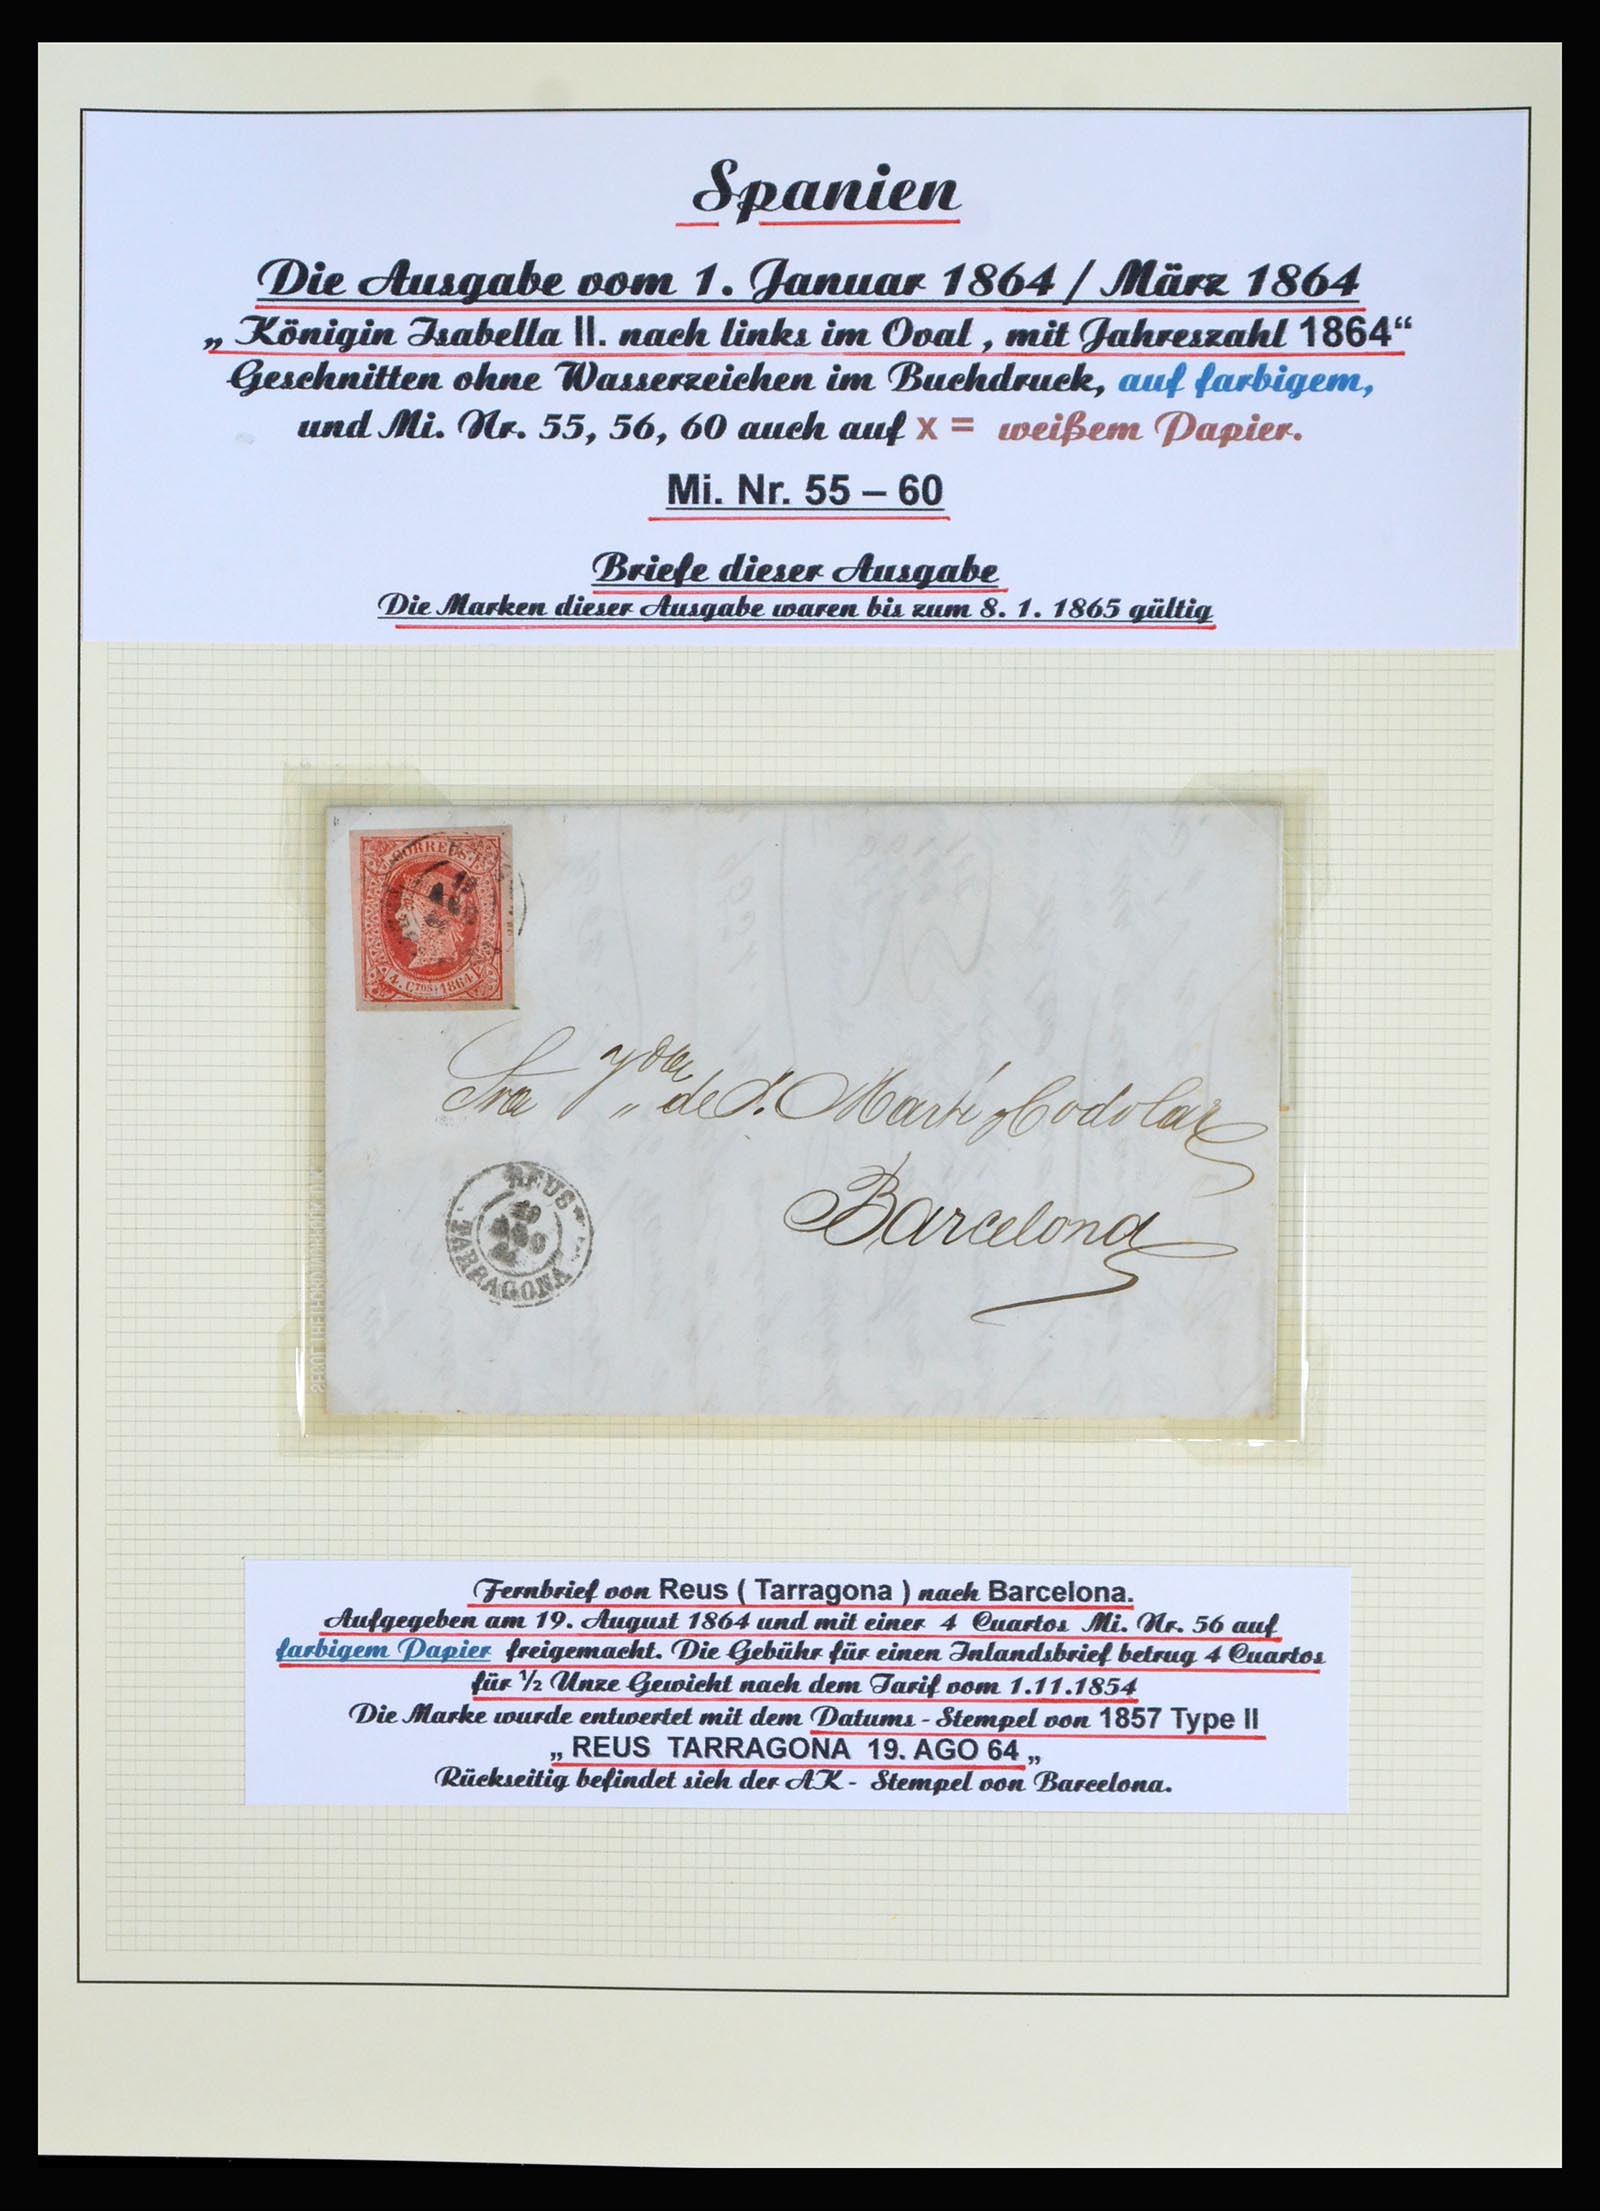 Spanien
Die Ausgabe vom 1. Januar 1864 / März 1864
„ Königin Isabella II. nach links im Oval , mit Jahreszahl 1864“
Geschnitten ohne Wasserzeichen im Buchdruck, auf farbigem,
und Mi. Nr. 55, 56, 60 auch auf x = weißem Papier.
Mi. Nr. 55 – 60
Briefe dieser Ausgabe
Die Marken dieser Ausgabe waren bis zum 8. 1. 1865 gültig
CORREOS
19
4. CTOS. 1864
Sra
de J. Martí y Codolar
Barcelona
REUS
19
AGO
TARRAGONA
Fernbrief von Reus ( Tarragona ) nach Barcelona.
Aufgegeben am 19. August 1864 und mit einer 4 Cuartos Mi. Nr. 56 auf
farbigem Papier freigemacht. Die Gebühr für einen Inlandsbrief betrug 4 Cuartos
für ½ Unze Gewicht nach dem Tarif vom 1.11.1854
Die Marke wurde entwertet mit dem Datums - Stempel von 1857 Type II
„ REUS TARRAGONA 19. AGO 64 „
Rückseitig befindet sich der AK - Stempel von Barcelona.